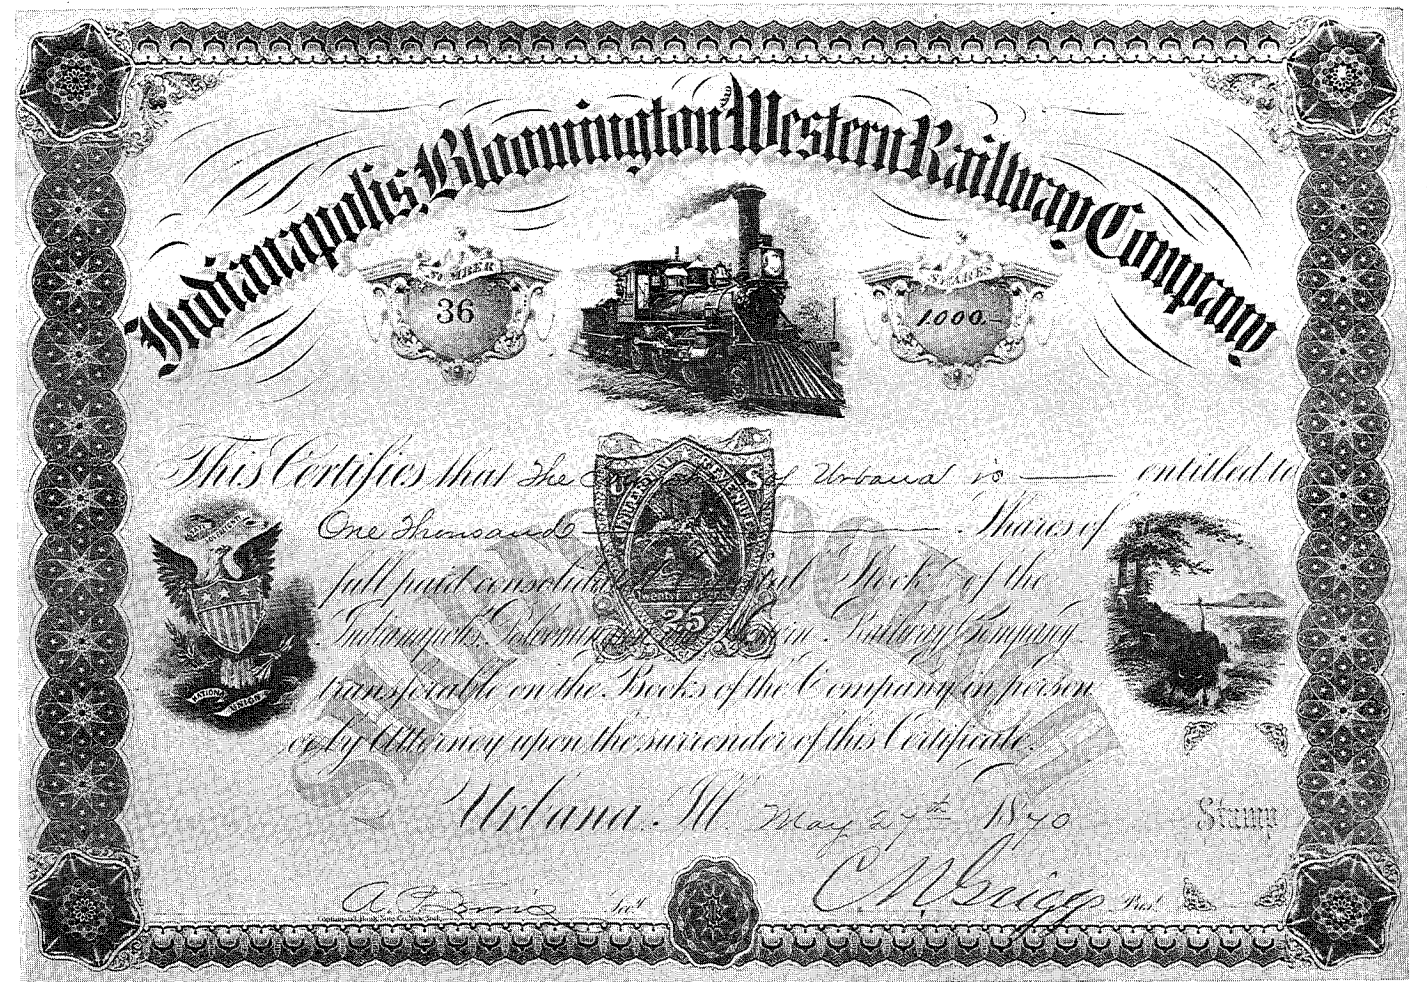 Indianapolis, Bloomington Western Railway Company
NUMBER
36
SHARES
1000.-
This Certifies that The of Urbana is entitled to
One Thousand Shares of
full paid Stock of the
Indianapolis, Railway Company
transferable on the Books of the Company in person
or by Attorney upon the surrender of this Certificate.
U S
INTER REVENUE
25
NATIONAL
UNION
SHARES $100 EACH
Urbana, Ill. May 27th 1870
Stamp
Sec'y
C R Griggs Pres't
Continental Bank Note Co. New York.